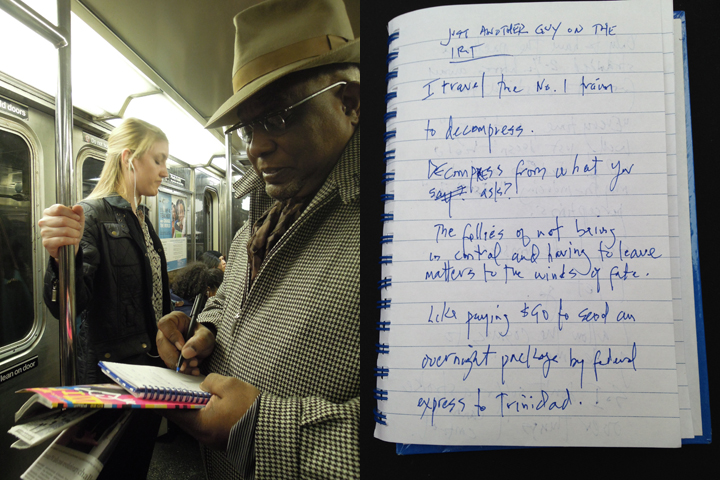 ld doors
lean on door
JUST ANOTHER GUY ON THE
IRT
I travel the No. 1 train
to decompress.
Decompress from what you
say? ask?
The follies of not being
in control and having to leave
matters to the winds of fate.
Like paying $90 to send an
overnight package by federal
express to Trinidad.